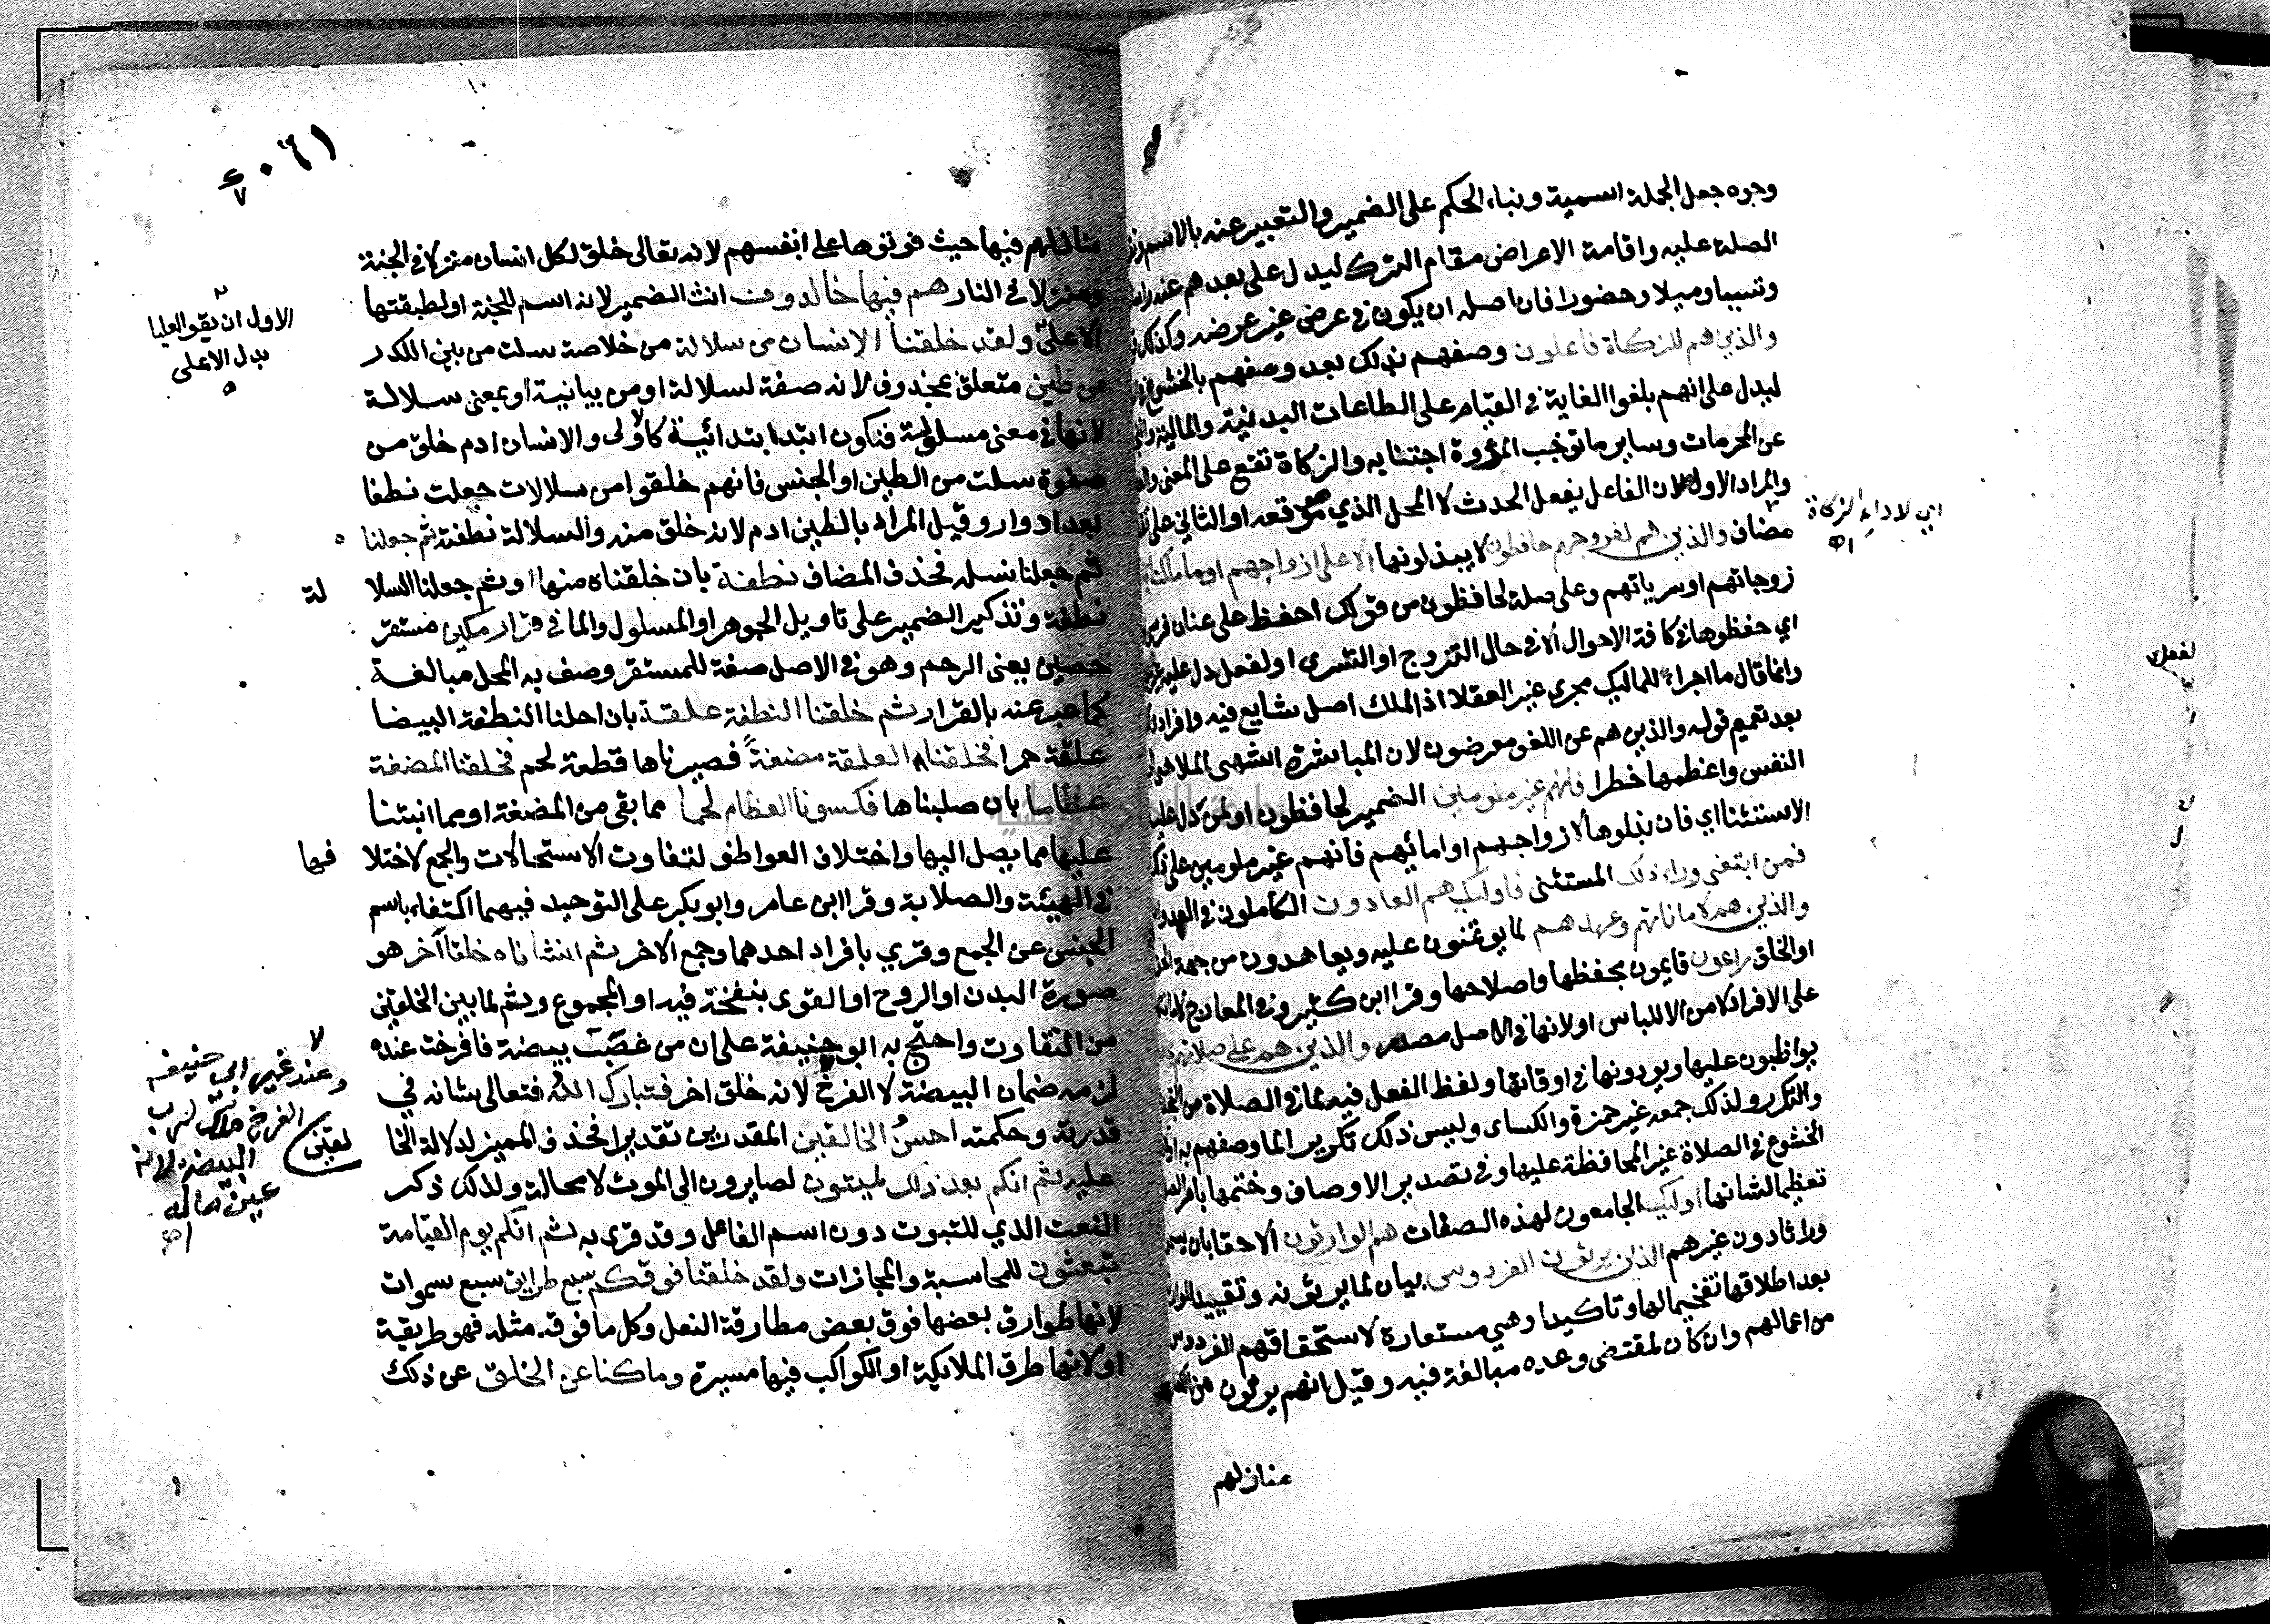 وجوه جعل الجملة اسمية وبناء الحكم على الضمير والتعبير عنه بالاسم
الصلة عليه واقامة الاعراض مقام الترك ليدل على بعدهم عنه راسا
وتسببا وميلا وحضورا فان اصله ان يكون في عرض غير عرضه وكذلك
والذين هم للزكاة فاعلون وصفهم بذلك بعد وصفهم بالخشوع
ليدل على انهم بلغوا الغاية في القيام على الطاعات البدنية والمالية
عن المحرمات وساير ما توجب المروة اجتنابه والزكاة تقع على المعنى
والمراد الاول لان الفاعل يفعل الحدث لا المحل الذي هو موقعه او الثاني على
مضاف والذين هم لفروجهم حافظون لا يبذلونها الا على ازواجهم او ما ملكت
زوجاتهم او سرياتهم وعلى صلة لحافظون من قولك احفظ على عنان فرسي
اي حفظوها في كافة الاحوال الا في حال التزوج او التسري او لفعل دل عليه
وانما قال ما اجراء للمماليك مجرى غير العقلا اذ الملك اصل شايع فيه وافراد
بعد تعميم قوله والذين هم عن اللغو معرضون لان المباشرة اشهى الملاهي
النفس واعظمها خطرا فانهم غير ملومين الضمير لحافظون او لمن دل عليه
الاستثنا اي فان بذلوها لازواجهم او امائهم فانهم غير ملومين على
فمن ابتغى وراء ذلك المستثنى فاوليك هم العادون الكاملون في العدوان
والذين هم لاماناتهم وعهدهم لما يوتمنون عليه ويعاهدون من جهة
او الخلق راعون قايمون بحفظها واصلاحها وقرا ابن كثير وفي المعارج
على الافراد لامن الالباس او لانها في الاصل مصدر والذين هم على صلاتهم
يواظبون عليها ويودونها في اوقاتها ولفظ الفعل فيه لما في الصلاة من
والتكرر ولذلك جمعه غير حمزة والكساى وليس ذلك تكريرا لما وصفهم به
الخشوع في الصلاة غير المحافظة عليها وفي تصدير الاوصاف وختمها
تعظيما لشانها اوليك الجامعون لهذه الصفات هم الوارثون الاحقا بان
وراثا دون غيرهم الذين يرثون الفردوس بيان لما يرثونه وتقييد
بعد اطلاقها تفخيما لها وتاكيدا وهي مستعارة لاستحقاقهم الفردوس
من اعمالهم وان كان لمقتضى وعده مبالغة فيه وقيل انهم يرثون من
منازلهم
اي لاداء الزكاة
اه
منازلهم فيها حيث فوتوها على انفسهم لانه تعالى خلق لكل انسان منزلا في الجنة
ومنزلا في النار هم فيها خالدون انث الضمير لانه اسم للجنة او لطبقتها
الاعلى ولقد خلقنا الانسان من سلالة من خلاصة سلت من بين الكدر
من طين متعلق بمحذوف لانه صفة لسلالة او من بيانية او بمعنى سلالة
لانها في معنى مسلولة فتكون ابتدا ابتدائية كالاولى والانسان ادم خلق من
صفوة سلت من الطين او الجنس فانهم خلقوا من سلالات جعلت نطفا
بعد ادوار وقيل المراد بالطين ادم لانه خلق منه والسلالة نطفته ثم جعلنا
ثم جعلنا نسله فحذف المضاف نطفة بان خلقناه منها او ثم جعلنا السلا لة
نطفة وتذكير الضمير على تاويل الجوهر او المسلول والما في قرار مكين مستقر
حصين يعنى الرحم وهو في الاصل صفة للمستقر وصف به المحل مبالغة
كما عبر عنه بالقرار ثم خلقنا النطفة علقة بان احلنا النطفة البيضا
علقة حمرا فخلقنا العلقة مضغةً فصيرناها قطعة لحم فخلقنا المضغة
عظاما بان صلبناها فكسونا العظام لحما مما بقى من المضغة او مما انبتنا
عليها مما يصل اليها واختلاف العواطف لتفاوت الاستحالات والجمع لاختلا فها
في الهيئة والصلابة وقرا ابن عامر وابو بكر على التوحيد فيهما اكتفاء باسم
الجنس عن الجمع وقري بافراد احدهما وجمع الاخر ثم انشاناه خلقا آخر هو
صورة البدن او الروح او القوى بنفخه فيه او المجموع وثم لما بين الخلقتين
من التفاوت واحتج به ابو حنيفة على ان من غصب بيضة فافرخت عنده
لزمه ضمان البيضة لا الفرخ لانه خلق اخر فتبارك الله فتعالى شانه في
قدرته وحكمته احسنُ الخالقين المقدرين تقديرا فحذف المميز لدلالة الخا لقين
عليه ثم انكم بعد ذلك لميتون لصايرون الى الموت لا محالة ولذلك ذكر
النعت الذي للثبوت دون اسم الفاعل وقد قرى به ثم انكم يوم القيامة
تبعثون للمحاسبة والمجازات ولقد خلقنا فوقكم سبع طرايق سبع سموات
لانها طوارق بعضها فوق بعض مطارقة النعل وكل ما فوقه مثله فهو طريقة
او لانها طرق الملائكة او الكواكب فيها مسيرة وما كنا عن الخلق عن ذلك
الاول ان يقو العليا
بدل الاعلى
وعند غير ابي حنيفه
الفرخ لرب
البيضة لانه
عين ماله
اه